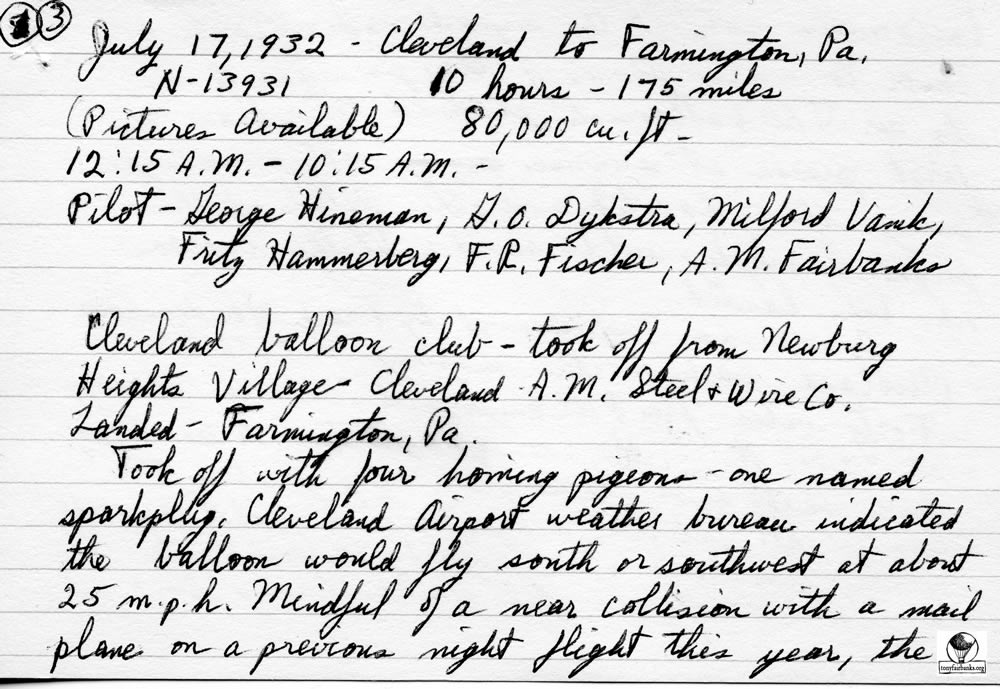 3
July 17, 1932 - Cleveland to Farmington, Pa.
N-13931 10 hours - 175 miles
(Pictures Available) 80,000 cu. ft -
12:15 A.M. - 10:15 A.M. -
Pilot - George Hineman, G.O. Dykstra, Milford Vanik,
Fritz Hammerberg, F.R. Fischer, A.M. Fairbanks
Cleveland balloon club - took off from Newburg
Heights Village - Cleveland A.M. Steel + Wire Co.
Landed - Farmington, Pa.
Took off with four homing pigeons - one named
sparkplug. Cleveland Airport weather bureau indicated
the balloon would fly south or southwest at about
25 m.p.h. Mindful of a near collision with a mail
plane on a previous night flight this year, the
tonyfairbanks.org